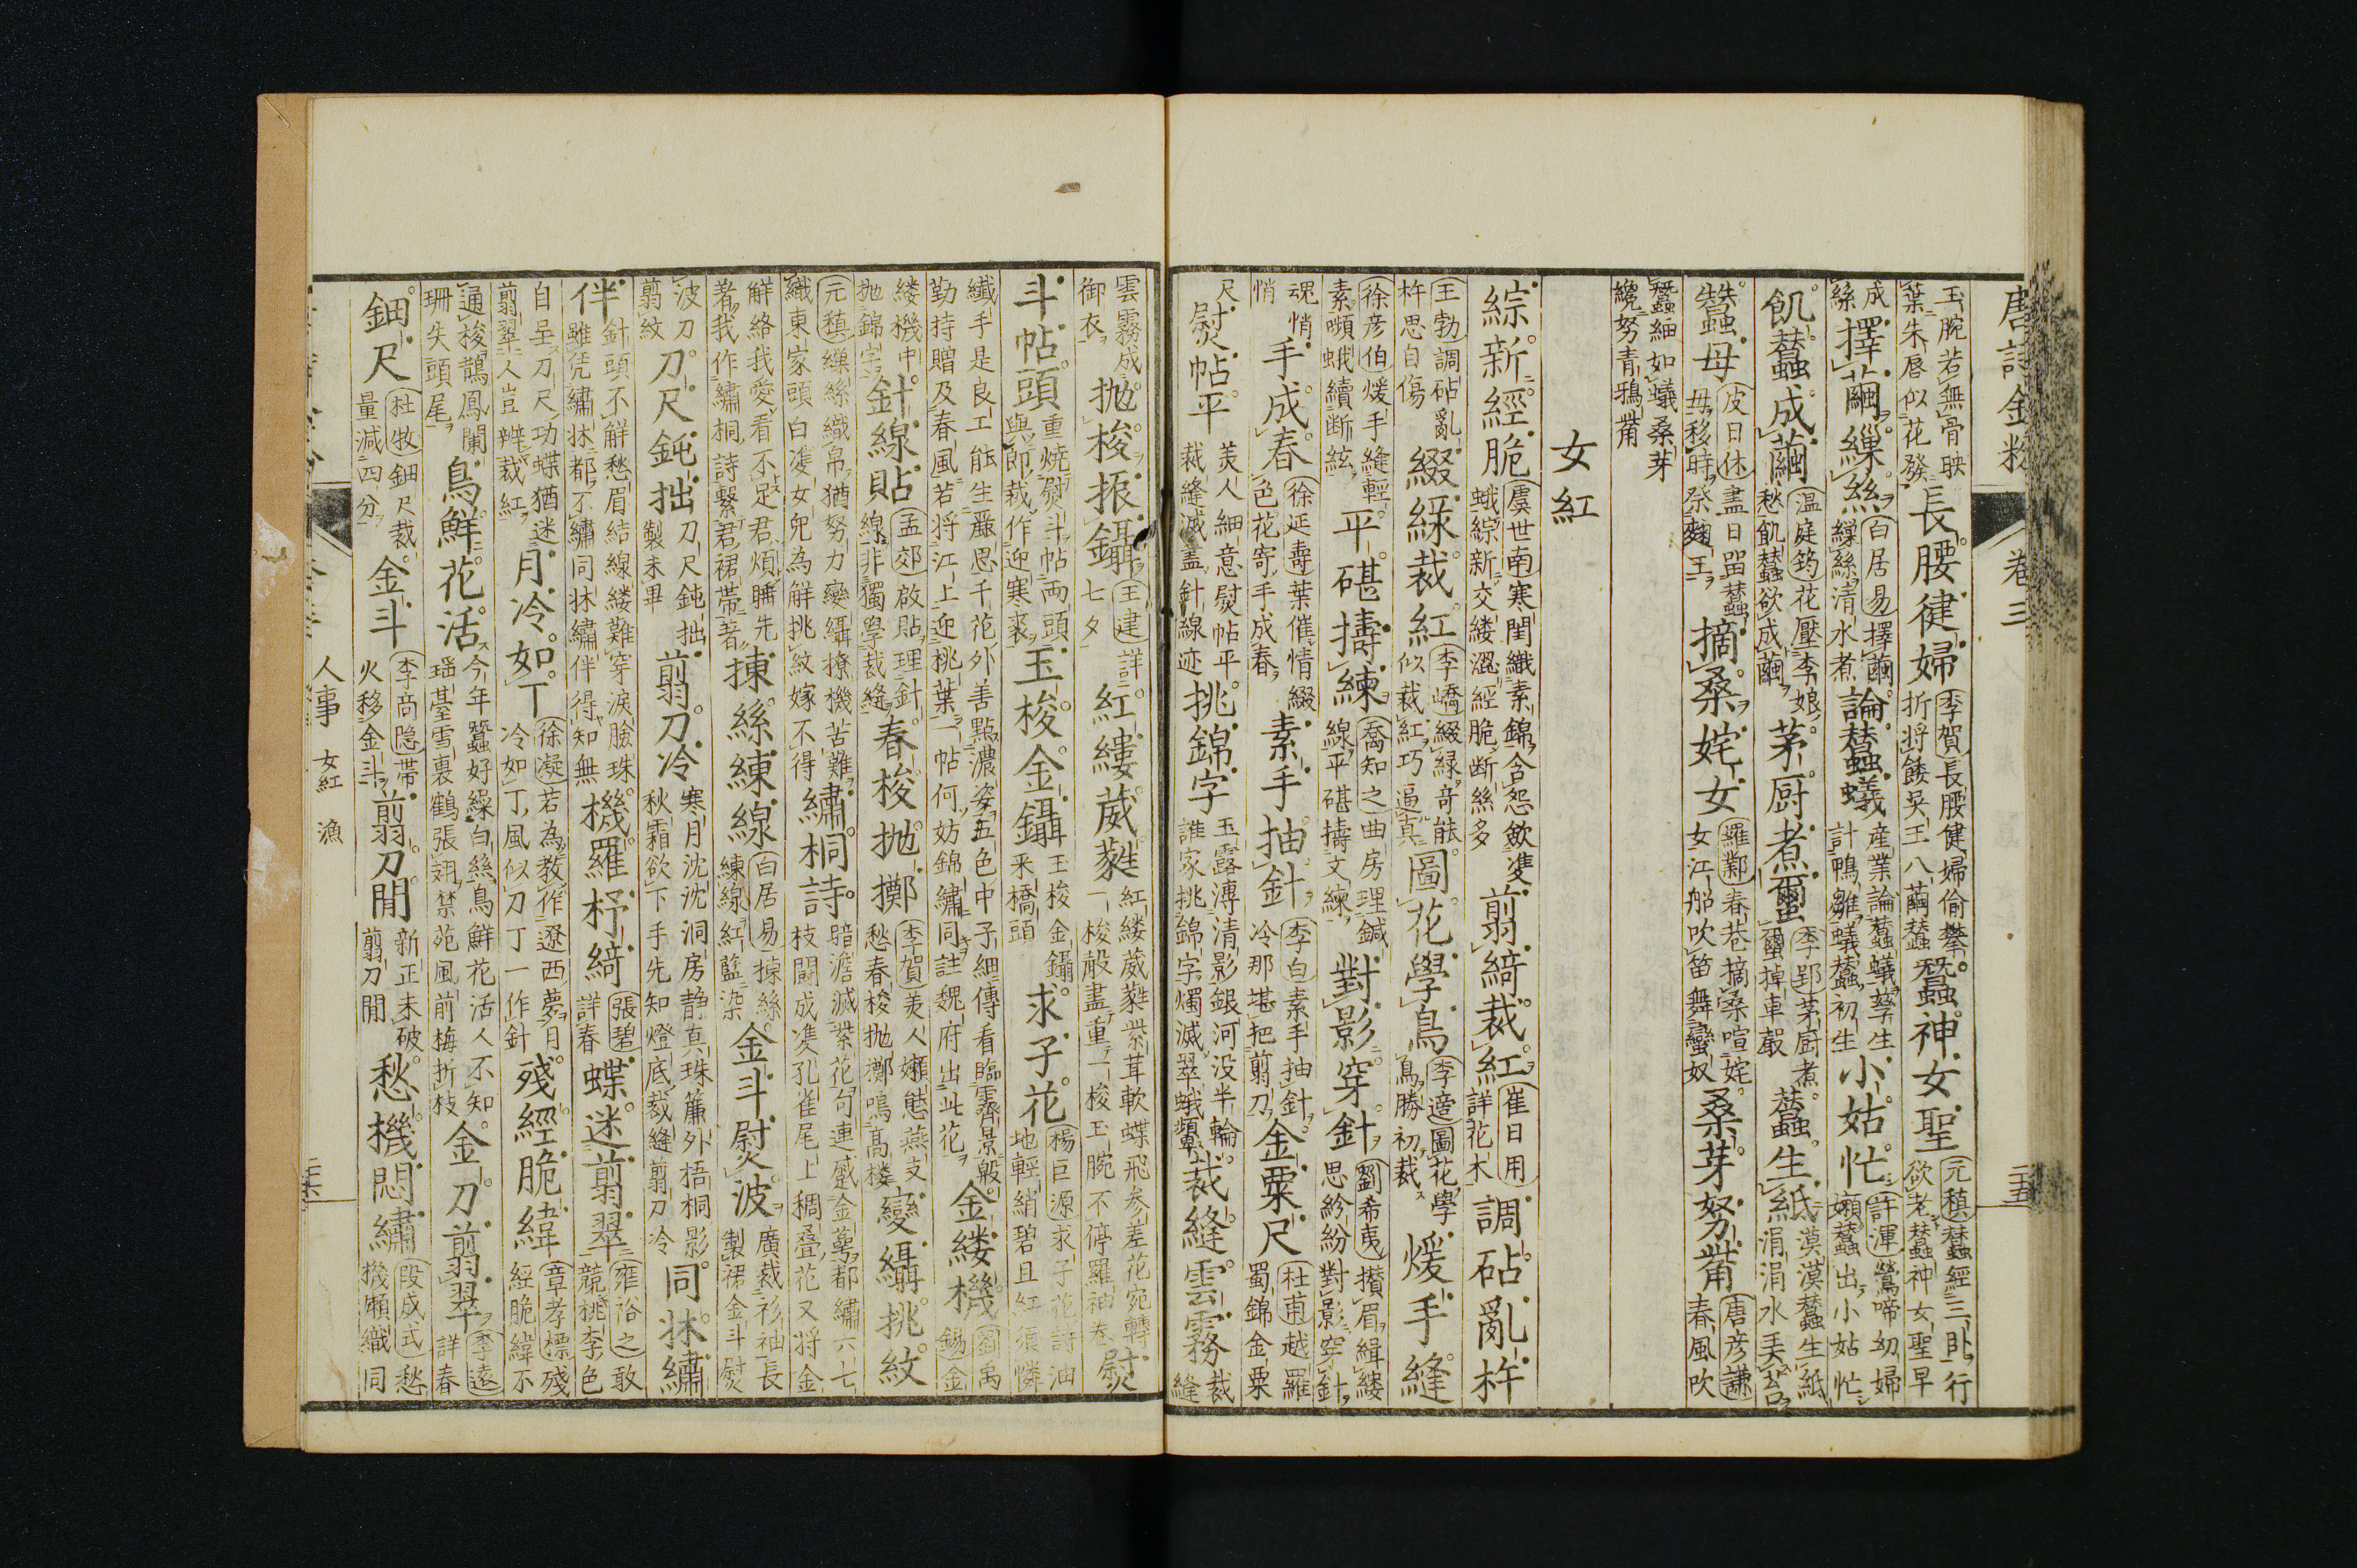 唐詩金粉 卷三
玉腕若無骨映葉朱唇似花發 長腰健婦 李賀長腰健婦偷攀折將餧吳王八繭蠶 蠶神女聖 元稹蠶經三卧行欲老蠶神女聖早
成絲 擇繭繰絲 白居易擇繭繰絲清水煮 論蠶蟻 產業論蠶蟻孳生計鴨雛蟻蠶初生 小姑忙 許渾鶯啼幼婦嬾蠶出小姑忙
飢蠶成繭 温庭筠花壓李娘愁飢蠶欲成繭 茅厨煮蠒 李郢茅厨煮蠒掉車聲 蠶生紙 漠漠蠶生紙涓涓水弄苔
蠶母 皮日休盡日留蠶母移時祭麹王 摘桑姹女 羅鄴春巷摘桑喧姹女江船吹笛舞蠻奴 桑芽努觜 唐彦謙春風吹
蠶細如蟻桑芽纔努青鴉觜
女紅
綜新經脆 虞世南寒閨織素錦含怨斂雙蛾綜新交縷澀經脆斷絲多 翦綺裁紅 崔日用詳花木 調砧亂杵
王勃調砧亂杵思自傷 綴綠裁紅 李嶠綴綠奇能似裁紅巧逼真 圖花學鳥 李適圖花學鳥勝初裁 煖手縫
徐彦伯煖手縫輕素嚬蛾續斷絃 平碪擣練 喬知之曲房理鍼線平碪擣文練 對影穿針 劉希夷攢眉緝縷思紛紛對影穿針
魂悄悄 手成春 徐延壽葉催情綴色花寄手成春 素手抽針 李白素手抽針冷那堪把剪刀 金粟尺 杜甫越羅蜀錦金粟
尺 熨帖平 美人細意熨帖平裁縫滅盡針線迹 挑錦字 玉露漙清影銀河没半輪誰家挑錦字燭滅翠蛾顰 裁縫雲霧 裁縫
雲霧成御衣 抛梭振鑷 王建詳七夕 紅縷葳蕤 紅縷葳蕤紫茸軟蝶飛參差花宛轉一梭聲盡重一梭玉腕不停羅袖卷 熨
斗帖頭 重燒熨斗帖兩頭與郎裁作迎寒裘 玉梭金鑷 玉梭金鑷采橋頭 求子花 楊巨源求子花詩油地輕綃碧且紅須憐
纖手是良工能生麗思千花外善點濃姿五色中子細傳看臨霽景殷勤持贈及春風若將江上迎桃葉一帖何妨錦繡同註魏府出此花 金縷機 劉禹錫金
縷機中抛錦字 針線貼 孟郊啟貼理針線非獨學裁縫 春梭抛擲 李賀美人嬾態燕支愁春梭抛擲鳴高樓 變繵挑紋
元稹繰絲織帛猶努力變繵撩機苦難織東家頭白雙女兒為解挑紋嫁不得 繡桐詩 暗澹滅紫花句連蹙金蕚都繡六七枝鬪成雙孔雀尾上稠叠花又将金
解絡我愛看不足君煩睡先著我作繡桐詩繫君裙帶著 揀絲練線 白居易揀絲練線紅藍染 金斗熨波 廣裁衫袖長製裙金斗熨
波刀翦紋 刀尺鈍拙 刀尺鈍拙製未畢 翦刀冷 寒月沈沈洞房静真珠簾外梧桐影秋霜欲下手先知燈底裁縫翦刀冷 同牀繡
伴 針頭不解愁眉結線縷難穿淚臉珠雖凭繡牀都不繡同牀繡伴得知無 機羅杼綺 張碧詳春 蝶迷翦翠 雍裕之敢競桃李色
自呈刀尺功蝶猶迷翦翠人豈辨裁紅 月冷如丁 徐凝若為教作遼西夢月冷如丁風似刀丁一作針 殘經脆緯 章孝標殘經脆緯不
通梭鵲鳳闌珊失頭尾 鳥鮮花活 今年蠶好繰白絲鳥鮮花活人不知瑶臺雪裏鶴張翅禁苑風前梅折枝 金刀翦翠 李遠詳春
鈿尺 杜牧鈿尺裁量減四分 金斗 李商隐帶火移金斗 翦刀閒 新正未破翦刀閒 愁機悶繡 段成式愁機嬾織同
人事 女紅 漁